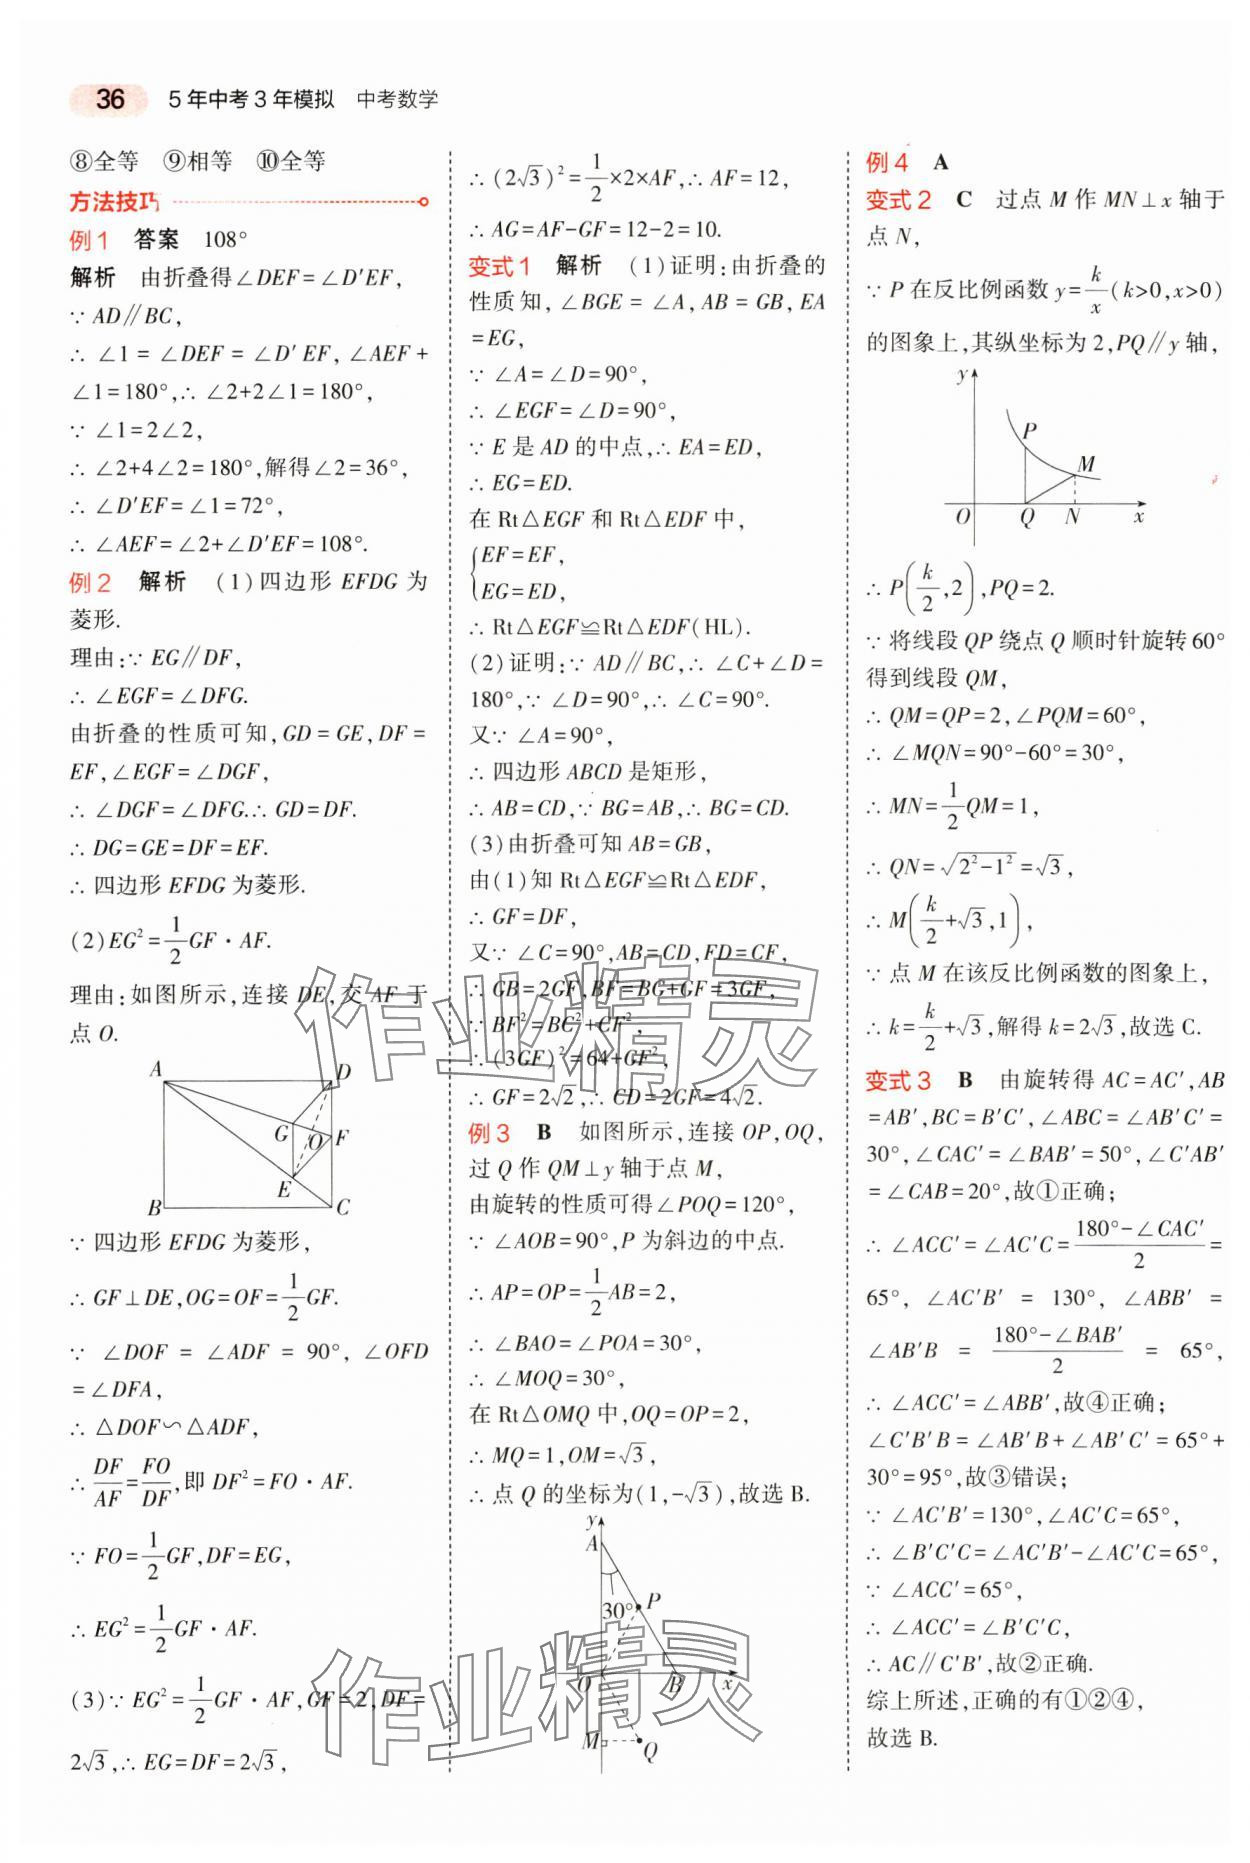 36 5年中考3年模拟 中考数学
⑧全等 ⑨相等 ⑩全等
方法技巧
例1 答案 108°
解析 由折叠得∠DEF=∠D′EF,
∵AD∥BC,
∴∠1=∠DEF=∠D′EF,∠AEF+
∠1=180°,∴∠2+2∠1=180°,
∵∠1=2∠2,
∴∠2+4∠2=180°,解得∠2=36°,
∴∠D′EF=∠1=72°,
∴∠AEF=∠2+∠D′EF=108°.
例2 解析 (1)四边形EFDG为
菱形.
理由:∵EG∥DF,
∴∠EGF=∠DFG.
由折叠的性质可知,GD=GE,DF=
EF,∠EGF=∠DGF,
∴∠DGF=∠DFG.∴GD=DF.
∴DG=GE=DF=EF.
∴四边形EFDG为菱形.
(2)EG²=1/2GF·AF.
理由:如图所示,连接DE,交AF于
点O.
A D
G O F
E
B C
∵四边形EFDG为菱形,
∴GF⊥DE,OG=OF=1/2GF.
∵∠DOF=∠ADF=90°,∠OFD
=∠DFA,
∴△DOF∽△ADF,
∴DF/AF=FO/DF,即DF²=FO·AF.
∵FO=1/2GF,DF=EG,
∴EG²=1/2GF·AF.
(3)∵EG²=1/2GF·AF,GF=2,DF=
2√3,∴EG=DF=2√3,
∴(2√3)²=1/2×2×AF,∴AF=12,
∴AG=AF-GF=12-2=10.
变式1 解析 (1)证明:由折叠的
性质知,∠BGE=∠A,AB=GB,EA
=EG,
∵∠A=∠D=90°,
∴∠EGF=∠D=90°,
∵E是AD的中点,∴EA=ED,
∴EG=ED.
在Rt△EGF和Rt△EDF中,
{EF=EF,
EG=ED,
∴Rt△EGF≌Rt△EDF(HL).
(2)证明:∵AD∥BC,∴∠C+∠D=
180°,∵∠D=90°,∴∠C=90°.
又∵∠A=90°,
∴四边形ABCD是矩形,
∴AB=CD,∵BG=AB,∴BG=CD.
(3)由折叠可知AB=GB,
由(1)知Rt△EGF≌Rt△EDF,
∴GF=DF,
又∵∠C=90°,AB=CD,FD=CF,
∴GB=2GF,BF=BG+GF=3GF,
∵BF²=BC²+CF²,
∴(3GF)²=64+GF²,
∴GF=2√2,∴CD=2GF=4√2.
例3 B 如图所示,连接OP,OQ,
过Q作QM⊥y轴于点M,
由旋转的性质可得∠POQ=120°,
∵∠AOB=90°,P为斜边的中点.
∴AP=OP=1/2AB=2,
∴∠BAO=∠POA=30°,
∴∠MOQ=30°,
在Rt△OMQ中,OQ=OP=2,
∴MQ=1,OM=√3,
∴点Q的坐标为(1,-√3),故选B.
y
A
30° P
O B x
M Q
例4 A
变式2 C 过点M作MN⊥x轴于
点N,
∵P在反比例函数y=k/x(k>0,x>0)
的图象上,其纵坐标为2,PQ∥y轴,
y
P
M
O Q N x
∴P(k/2,2),PQ=2.
∵将线段QP绕点Q顺时针旋转60°
得到线段QM,
∴QM=QP=2,∠PQM=60°,
∴∠MQN=90°-60°=30°,
∴MN=1/2QM=1,
∴QN=√(2²-1²)=√3,
∴M(k/2+√3,1),
∵点M在该反比例函数的图象上,
∴k=k/2+√3,解得k=2√3,故选C.
变式3 B 由旋转得AC=AC′,AB
=AB′,BC=B′C′,∠ABC=∠AB′C′=
30°,∠CAC′=∠BAB′=50°,∠C′AB′
=∠CAB=20°,故①正确;
∴∠ACC′=∠AC′C=(180°-∠CAC′)/2=
65°,∠AC′B′=130°,∠ABB′=
∠AB′B=(180°-∠BAB′)/2=65°,
∴∠ACC′=∠ABB′,故④正确;
∠C′B′B=∠AB′B+∠AB′C′=65°+
30°=95°,故③错误;
∵∠AC′B′=130°,∠AC′C=65°,
∴∠B′C′C=∠AC′B′-∠AC′C=65°,
∵∠ACC′=65°,
∴∠ACC′=∠B′C′C,
∴AC∥C′B′,故②正确.
综上所述,正确的有①②④,
故选B.
作业精灵
作业精灵